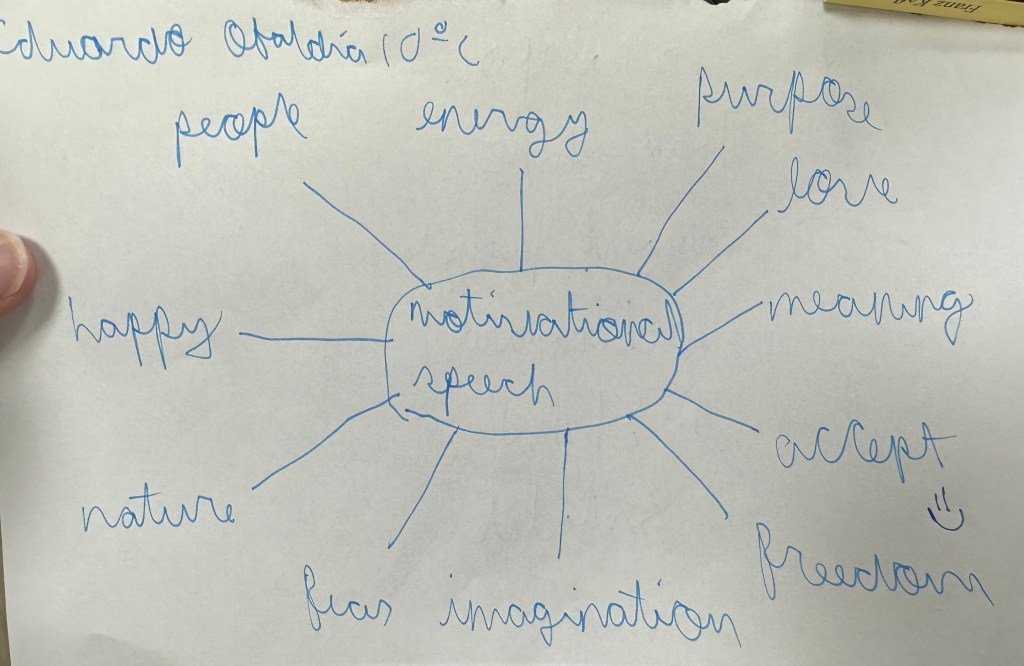 Eduardo Obaldía 10º C
people
energy
purpose
love
meaning
accept
freedom
imagination
fear
nature
happy
motivational
speech
Franz